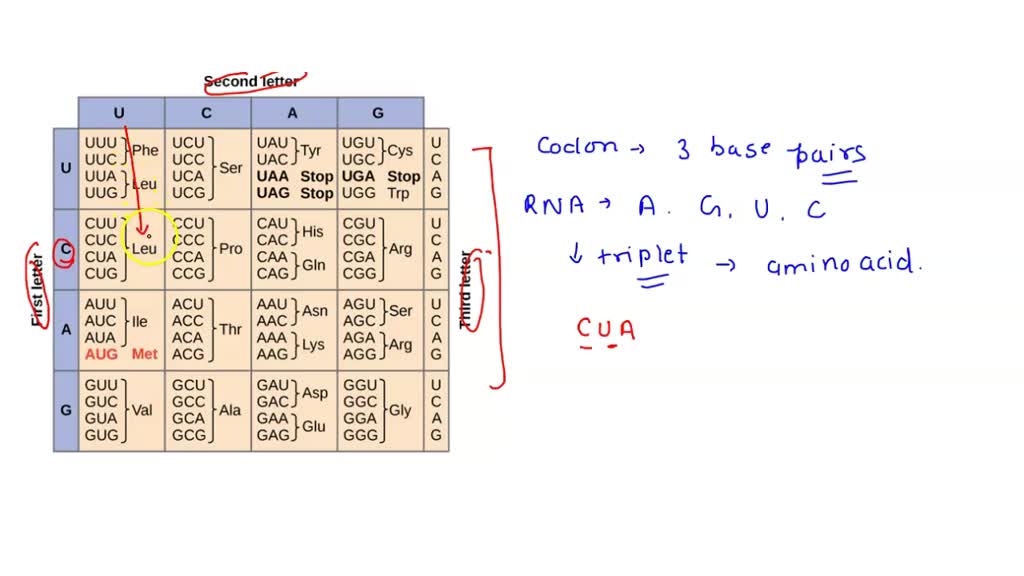 Second letter
U C A G
First letter
Third letter
U
UUU UUC Phe
UUA UUG Leu
UCU UCC UCA UCG Ser
UAU UAC Tyr
UAA Stop
UAG Stop
UGU UGC Cys
UGA Stop
UGG Trp
U C A G
C
CUU CUC CUA CUG Leu
CCU CCC CCA CCG Pro
CAU CAC His
CAA CAG Gln
CGU CGC CGA CGG Arg
U C A G
A
AUU AUC AUA Ile
AUG Met
ACU ACC ACA ACG Thr
AAU AAC Asn
AAA AAG Lys
AGU AGC Ser
AGA AGG Arg
U C A G
G
GUU GUC GUA GUG Val
GCU GCC GCA GCG Ala
GAU GAC Asp
GAA GAG Glu
GGU GGC GGA GGG Gly
U C A G
Codon → 3 base pairs
RNA → A. G. U. C
↓ triplet → amino acid.
CUA